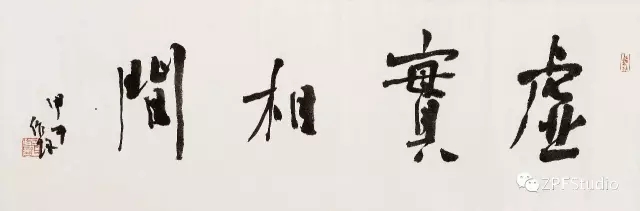 虛實相間
甲午
ZPFStudio